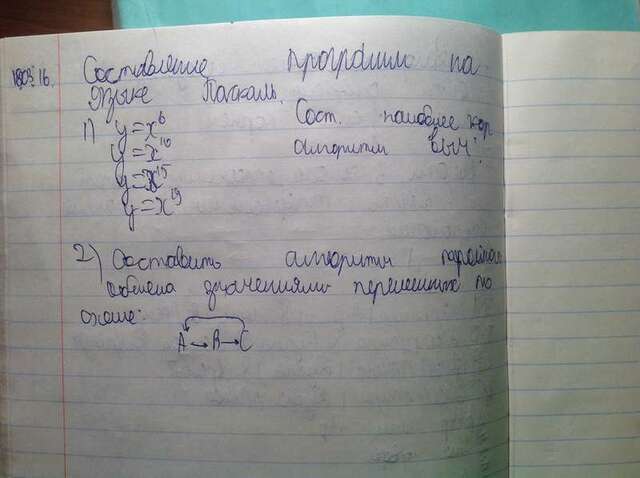 18.03.16. Составление программ на
языке Паскаль.
1) y=x⁶ Сост. наиболее кор
y=x¹⁰ алгоритм выч:
y=x¹⁵
y=x¹⁹
2) Составить алгоритм
обмена значениями переменных по
схеме:
A→B→C